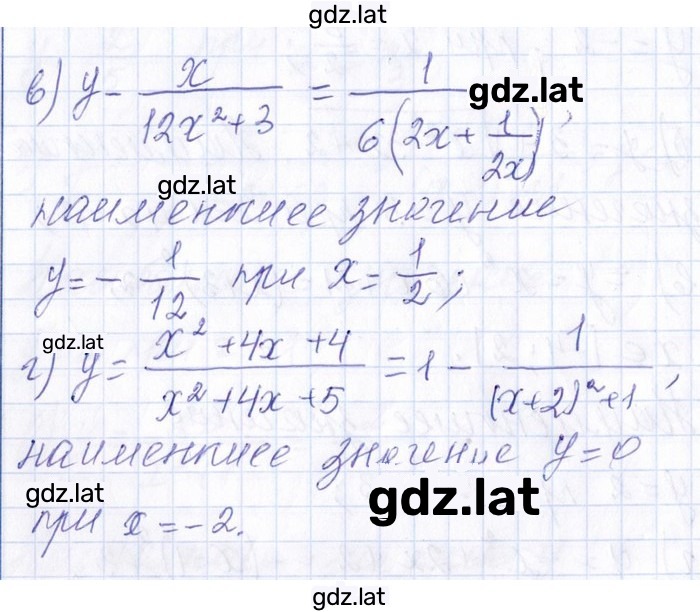 gdz.lat
в) y - x/(12x²+3) = 1/(6(2x + 1/(2x))),
gdz.lat
gdz.lat
наименьшее значение
y = - 1/12 при x = 1/2;
gdz.lat
г) y = (x² + 4x + 4)/(x² + 4x + 5) = 1 - 1/((x+2)² + 1),
наименьшее значение y = 0
gdz.lat
gdz.lat
при x = -2.
gdz.lat